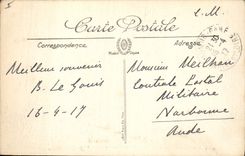 5
S.M.
Carte Postale
Correspondance
Adresse
Meilleur souvenir
B. Le Gouis
16-4-17
Monsieur Meilhan
Controle Postal
Militaire
Narbonne
Aude